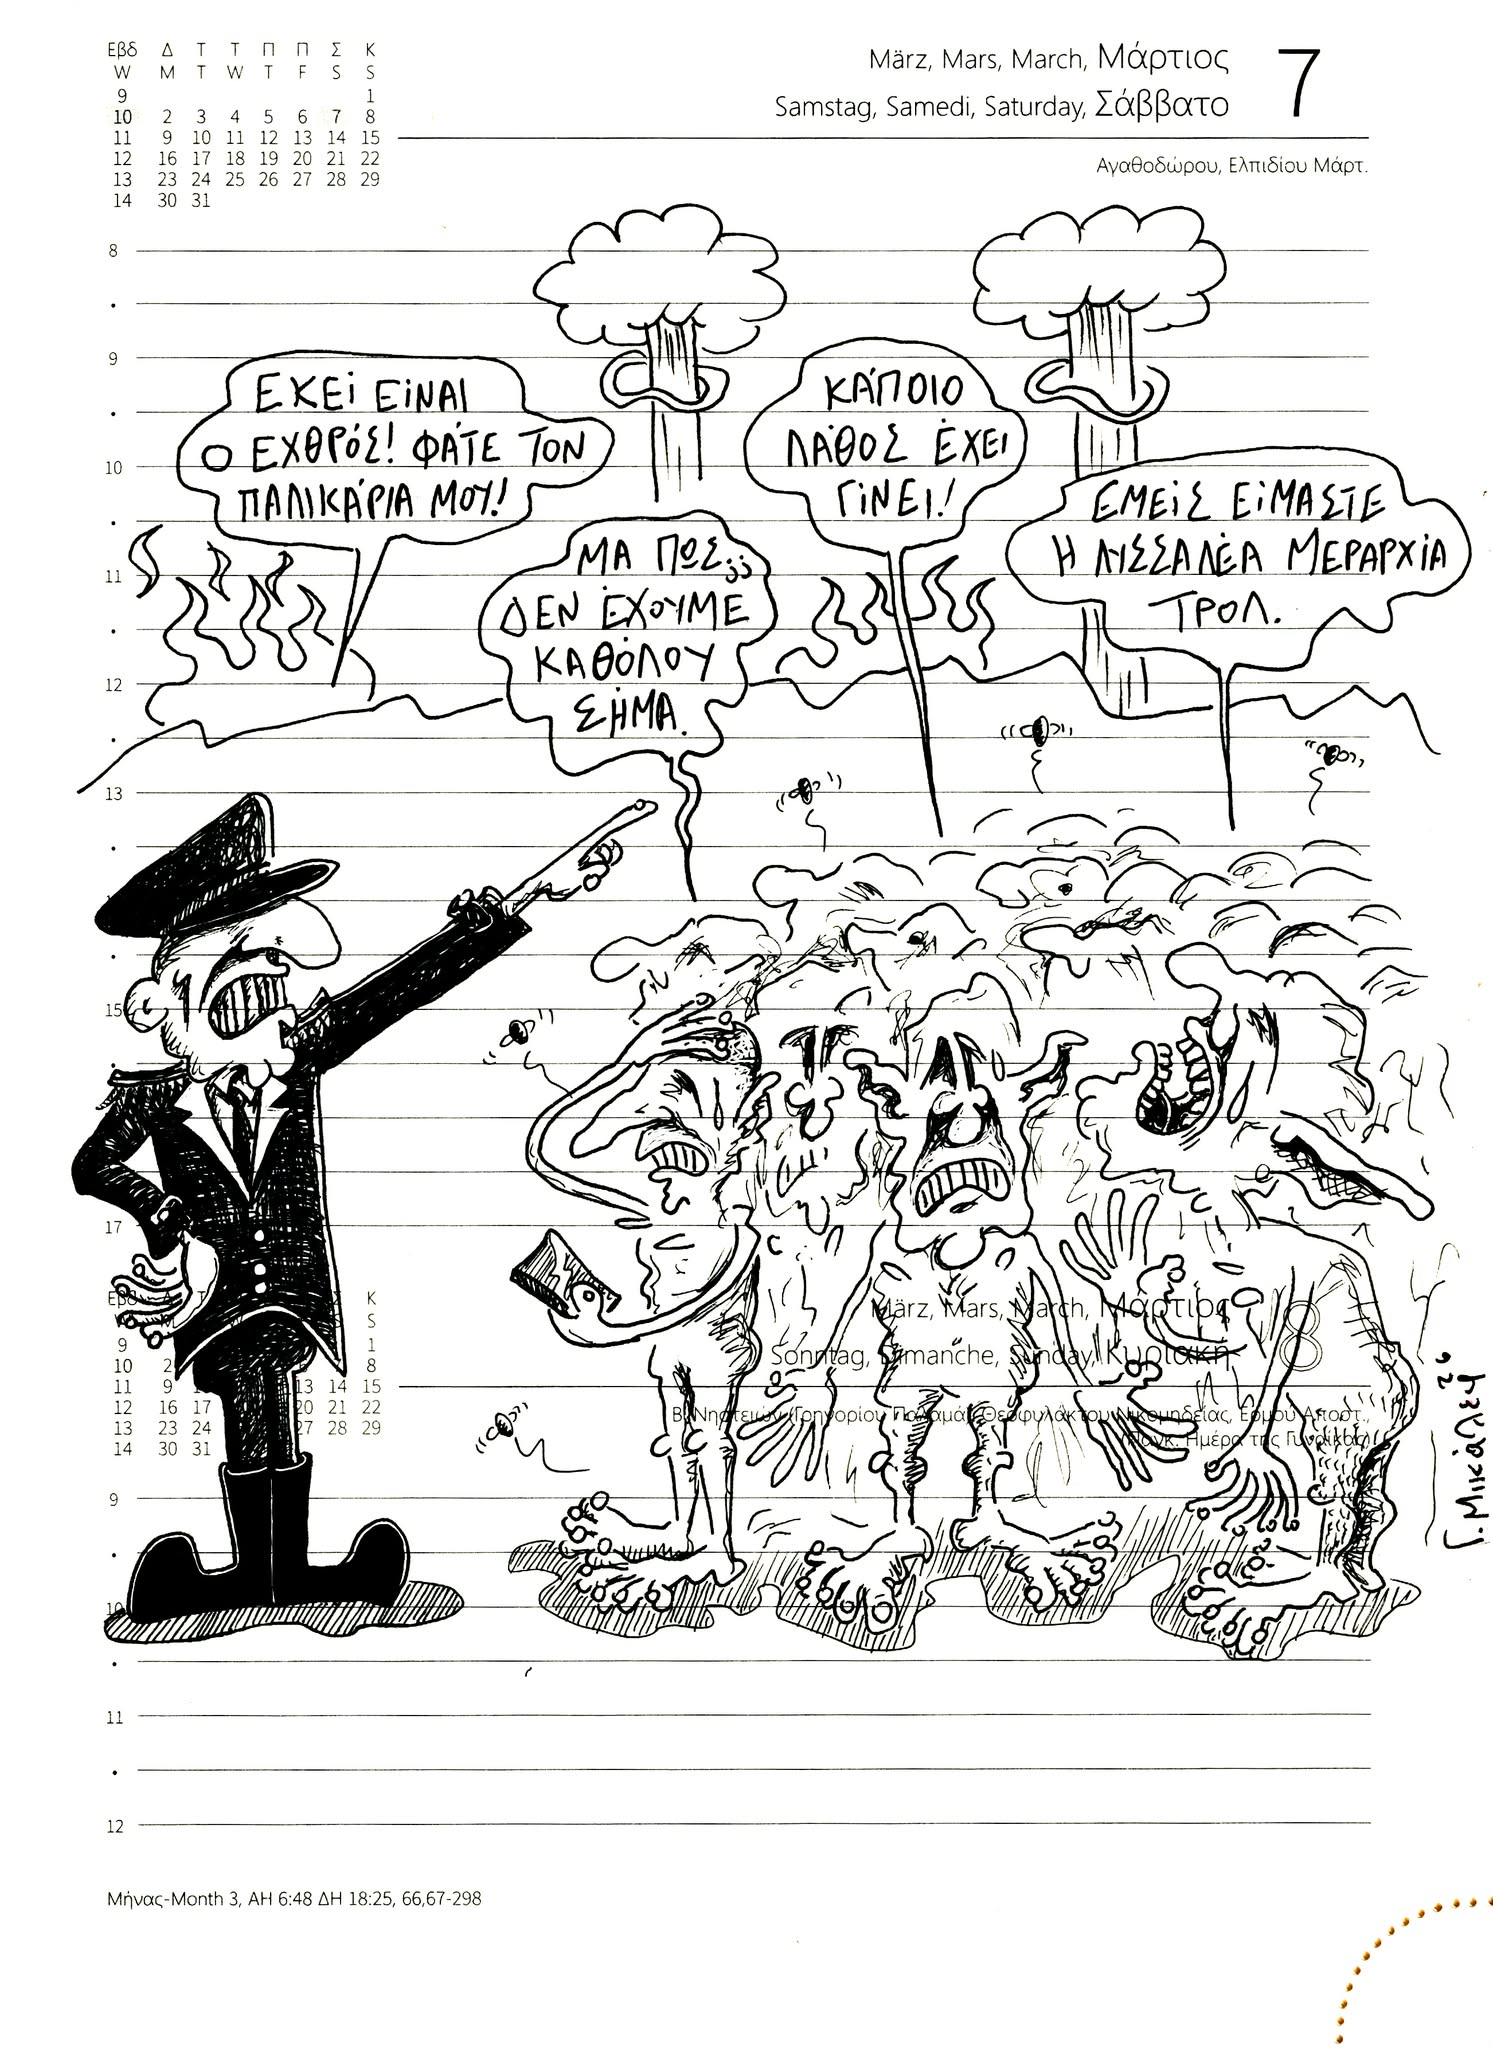 Εβδ Δ Τ Τ Π Π Σ Κ
W M T W T F S S
9 1
10 2 3 4 5 6 7 8
11 9 10 11 12 13 14 15
12 16 17 18 19 20 21 22
13 23 24 25 26 27 28 29
14 30 31
März, Mars, March, Μάρτιος 7
Samstag, Samedi, Saturday, Σάββατο
Αγαθοδώρου, Ελπιδίου Μάρτ.
8
9
10
11
12
13
15
17
ΕΚΕΙ ΕΙΝΑΙ
Ο ΕΧΘΡΌΣ! ΦΆΤΕ ΤΟΝ
ΠΑΛΙΚΆΡΙΑ ΜΟΥ!
ΜΑ ΠΩΣ;;
ΔΕΝ ΈΧΟΥΜΕ
ΚΑΘΌΛΟΥ
ΣΉΜΑ.
ΚΆΠΟΙΟ
ΛΆΘΟΣ ΈΧΕΙ
ΓΊΝΕΙ!
ΕΜΕΊΣ ΕΊΜΑΣΤΕ
Η ΛΥΣΣΑΛΈΑ ΜΕΡΑΡΧΊΑ
ΤΡΟΛ.
Εβδ Κ
S
9 1
10 2 8
11 9 13 14 15
12 16 17 20 21 22
13 23 24 27 28 29
14 30 31
März, Mars, March, Μάρτιος 8
Sonntag, Dimanche, Sunday, Κυριακή
Β΄ Νηστειών (Γρηγορίου Παλαμά), Θεοφυλάκτου Νικομηδείας, Ερμού Αποστ.,
(Παγκ. Ημέρα της Γυναίκας)
9
10
11
12
Γ. Μικάλεφ 26
Μήνας-Month 3, ΑΗ 6:48 ΔΗ 18:25, 66,67-298